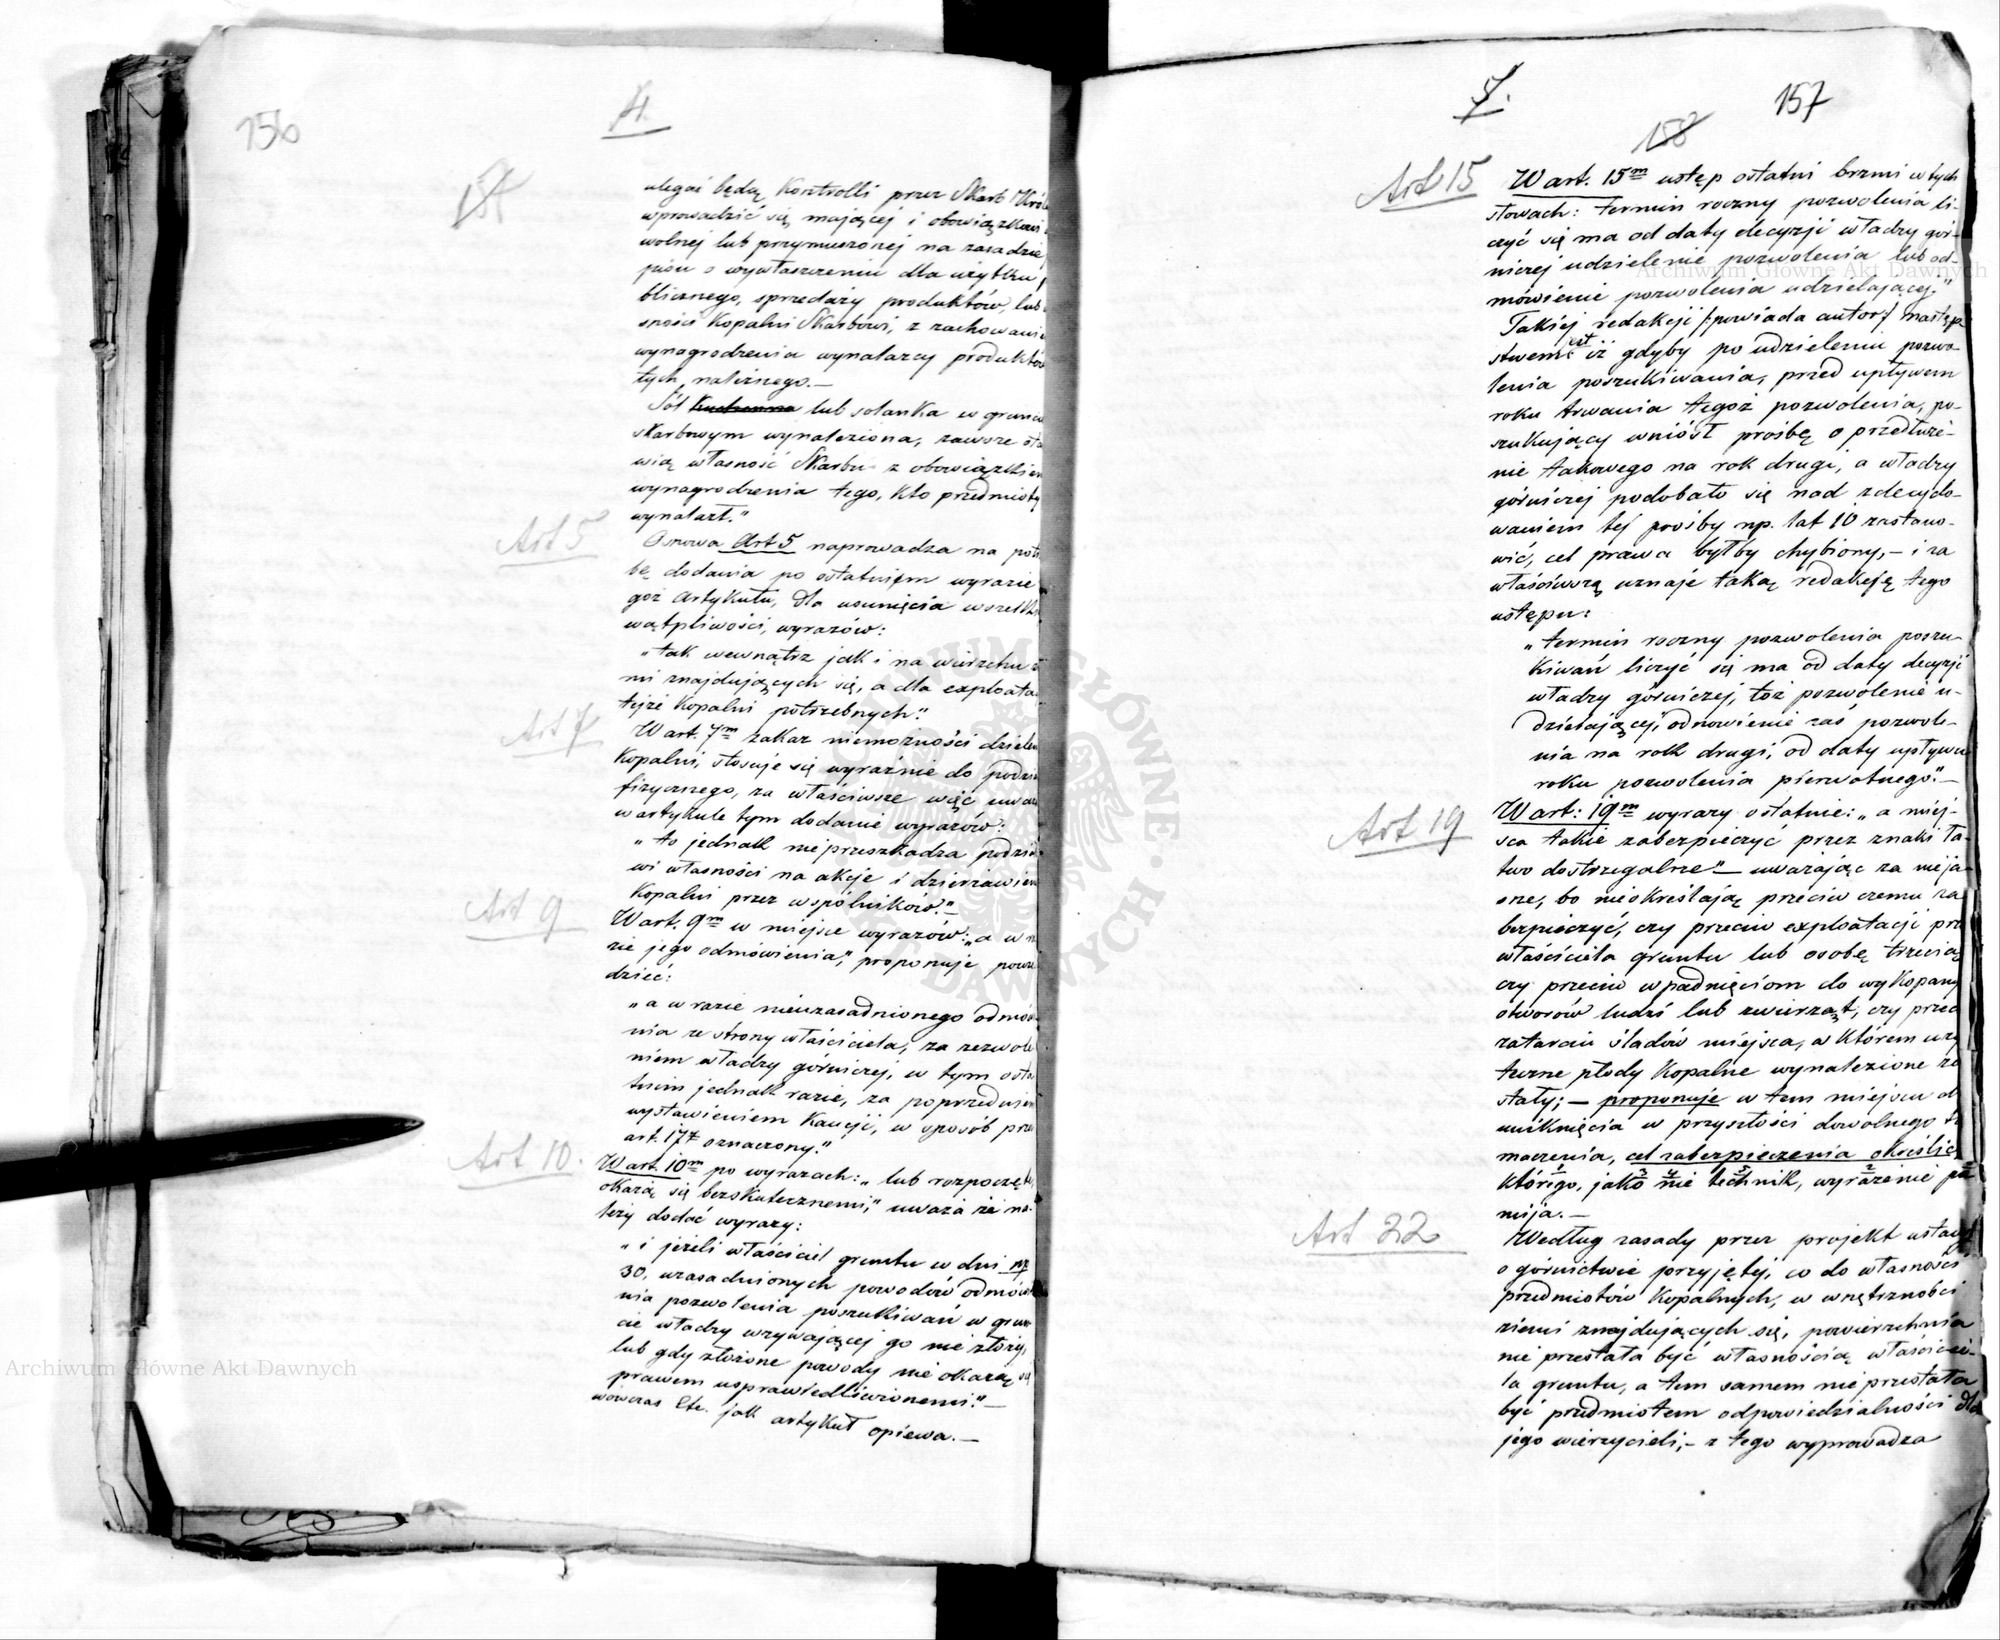 156
4.
ulegać będą Kontrolli przez Skarb Król
wprowadzić się mającej i obowiązkowi
wolnej lub przymuszonej na zasadzie
pisu o wywłaszczeniu dla użytku
blicznego, sprzedaży produktów, lub
sności Kopalni Skarbowi, z zachowanie
wynagrodzenia wynalazcy produktów
tych, należnego.—
Sól lub solanka w grunc
skarbowym wynaleziona, zawsze sta
wią własność Skarbu z obowiązkiem
wynagrodzenia tego, kto przedmioty
wynalazł."
Art 5
Osnowa Art 5 naprowadza na potr
bę dodania po ostatniem wyrazie
goż Artykułu, dla usunięcia wszelk
wątpliwości, wyrazów:
„tak wewnątrz jak i na wierzchu z
mi znajdujących się, a dla exploata
tejże Kopalni potrzebnych."
Art 7
W art. 7m zakaz niemożności dzielen
Kopalni, stosuje się wyraźnie do podzia
fizycznego, za właściwsze więc uważa
w artykule tym dodanie wyrazów:
„to jednak nie przeszkadza podzia
wi własności na akcje i dzierżawien
Kopalni przez wspólników."—
Art 9
W art. 9m w miejsce wyrazów: „a w r
zie jego odmówienia," proponuje powie
dzieć:
„a w razie nieuzasadnionego odmów
nia ze strony właściciela, za zezwole
niem władzy górniczej, w tym osta
tnim jednak razie, za poprzedniem
wystawieniem Kaucji, w sposób prze
art. 17t oznaczony."
Art 10.
W art. 10m po wyrazach: „lub rozpoczęte,
okażą się bezskutecznemi," uważa że na-
leży dodać wyrazy:
„i jeżeli właściciel gruntu w dni np
30, uzasadnionych powodów odmówie
nia pozwolenia poszukiwań w grun
cie władzy wzywającej go nie złoży,
lub gdy złożone powody nie okażą się
prawem usprawiedliwionemi."—
wówczas Etc. jak artykuł opiewa.—
157
158
Art 15
W art. 15m ustęp ostatni brzmi w tych
słowach: termin roczny pozwolenia li-
czyć się ma od daty decyzji władzy gór-
niczej udzielenie pozwolenia lub od-
mówienie pozwolenia udzielającej."
Takiej redakcji /:powiada autor:/ następ-
stwem jest iż gdyby po udzieleniu pozwo-
lenia poszukiwania, przed upływem
roku trwania tegoż pozwolenia, po-
szukujący wniósł prośbę o przedłuże-
nie takowego na rok drugi, a władzy
górniczej podobało się nad zdecydo-
waniem tej prośby np. lat 10 zastano-
wić, cel prawa byłby chybiony,— i za
właściwszą uznaje taką redakcję tego
ustępu:
„termin roczny pozwolenia poszu-
kiwań liczyć się ma od daty decyzji
władzy górniczej, toż pozwolenie u-
dzielającej, odnowienie zaś pozwole-
nia na rok drugi, od daty upływu
roku pozwolenia pierwotnego."—
Art 19
W art: 19m wyrazy ostatnie: „a miej-
sca takie zabezpieczyć przez znaki ła-
two dostrzegalne"— uważając za nieja-
sne, bo nieokreślają przeciw czemu za
bezpieczyć, czy przeciw exploatacji prze
właściciela gruntu lub osobę trzecią
czy przeciw wpadnięciom do wykopany
otworów ludzi lub zwierząt, czy przec
zatarciu śladów miejsca, w którem uży
teczne płody Kopalne wynalezione zo
stały;— proponuje w tem miejscu d
uniknięcia w przyszłości dowolnego tł
maczenia, cel zabezpieczenia określić
którego, jako nie technik, wyrażenie po
mija.—
Art 22
Według zasady przez projekt ustawy
o górnictwie przyjętej, co do własności
przedmiotów Kopalnych, w wnętrzności
ziemi znajdujących się, powierzchnia
nie przestała być własnością właścicie-
la gruntu, a tem samem nie przestała
być przedmiotem odpowiedzialności dla
jego wierzycieli,— z tego wyprowadza
Archiwum Główne Akt Dawnych
Archiwum Główne Akt Dawnych